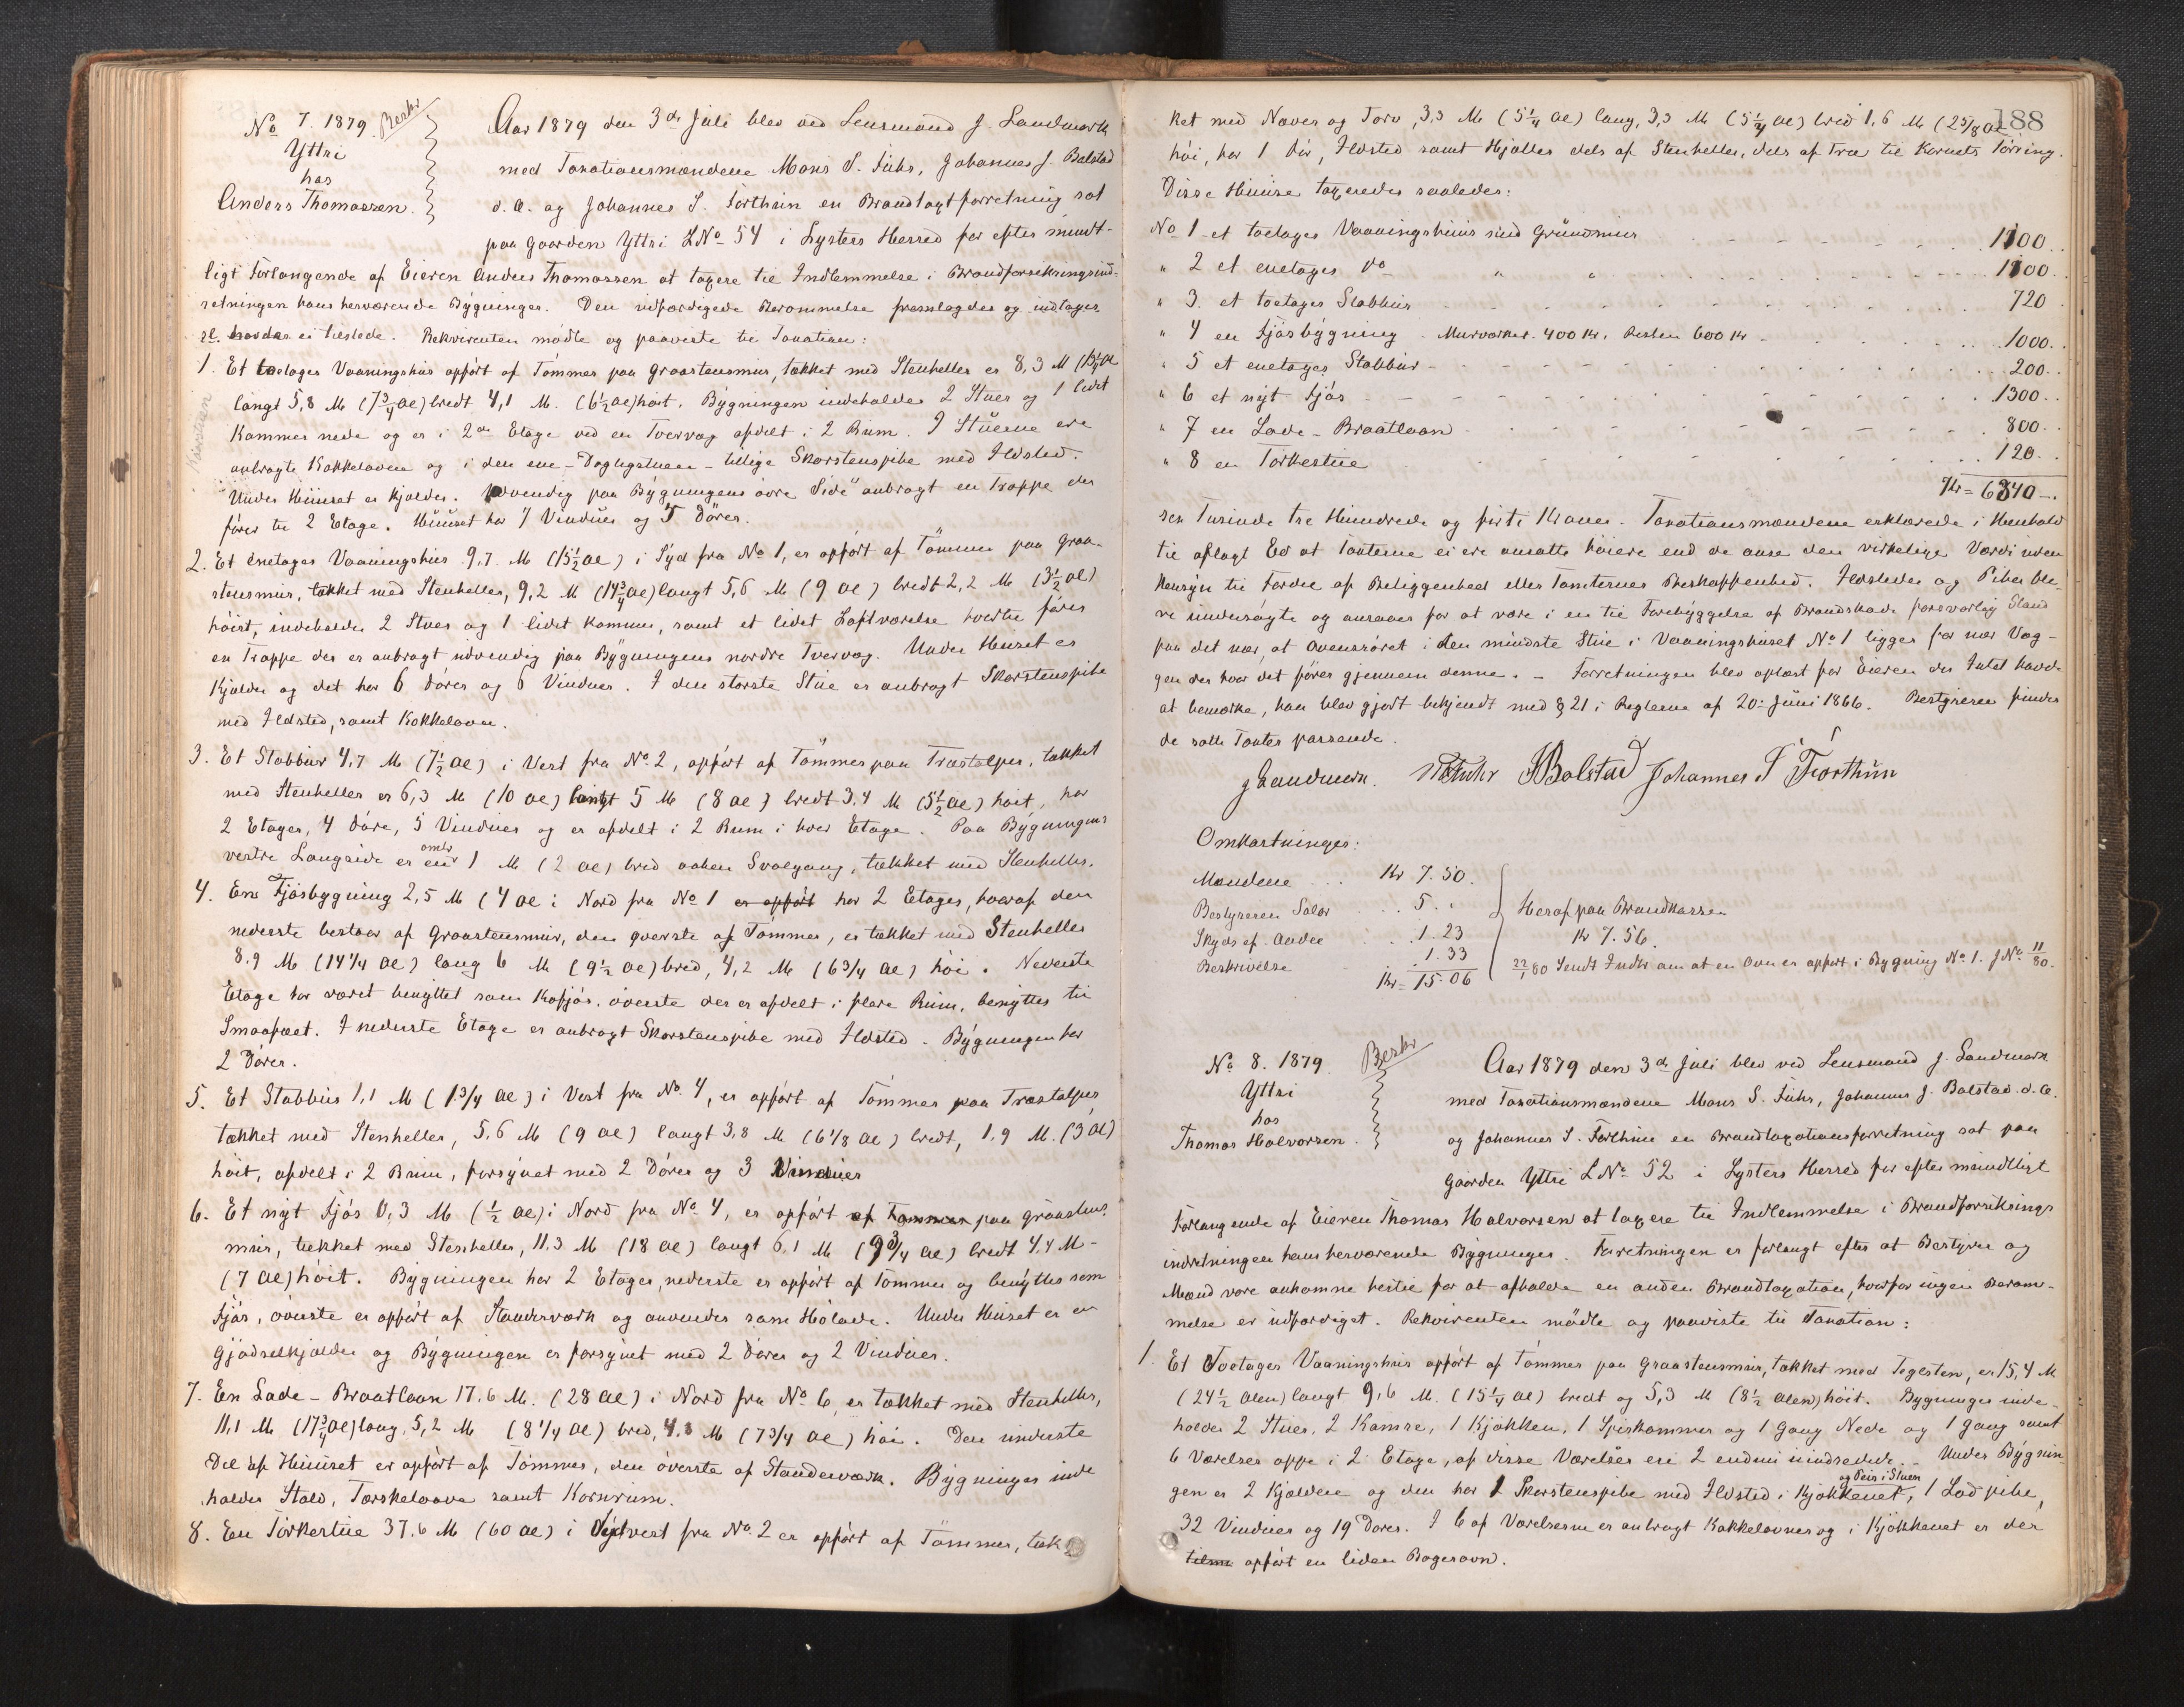 No 7. 1879. Beskr
Yttri
hos
Anders Thomassen.
Aar 1879 den 3de Juli blev ved Lensmand J. Landmark
med Taxationsmændene Mons S. Fuhr, Johannes J. Bolstad
d. æ. og Johannes S. Forthun en Brandtaxtforretning sat
paa Gaarden Yttri LNo 54 i Lysters Herred for efter mundt-
ligt Forlangende af Eieren Anders Thomassen at taxere til Indlemmelse i Brandforsikringsind-
retningen hans herværende Bygninger. Den udfærdigede Berammelse fremlagdes og indtages
ei tilstede. Rekvirenten mødte og paaviste til Taxation:
1. Et toetages Vaaningshus opført af Tømmer paa Graastensmur, tækket med Stenheller er 8,3 M (13¼ Al
langt 5,8 M (7¾ Al) bredt 4,1 M. (6½ Al) høit. Bygningen indeholder 2 Stuer og 1 lidet
Kammer nede og er i 2den Etage ved en Tvervæg afdelt i 2 Rum. I Stuerne ere
anbragte Kakkelovne og i den ene – Daglegstuen – tillige Skorstenspibe med Ildsted.
Under Huuset er Kjælder. Udvendig paa Bygningens øvre Side anbragt en Trappe der
fører til 2 Etage. Huuset har 7 Vinduer og 5 Døre.
2. Et enetages Vaaningshus 9,7 M (15½ Al) i Syd fra No 1, er opført af Tømmer paa Graa-
stensmur, tækket med Stenheller, 9,2 M (14¾ Al) langt 5,6 M (9 Al) bredt 2,2 M (3½ Al)
høit, indeholder 2 Stuer og 1 lidet Kammer, samt et lidet Loftværelse hvortil fører
en Trappe der er anbragt udvendig paa Bygningens nordre Tvervæg. Under Huset er
Kjælder og det har 6 Døre og 6 Vinduer. I den største Stue er anbragt Skorstenspibe
med Ildsted, samt Kakkelovn.
3. Et Stabbur 4,7 M (7½ Al) i Vest fra No. 2, opført af Tømmer paa Træstolper, tækket
med Stenheller er 6,3 M (10 Al) langt 5 M (8 Al) bredt 3,4 M (5½ Al) høit, har
2 Etager, 4 Døre, 5 Vinduer og er afdelt i 2 Rum i hver Etage. Paa Bygningens
vestre Langside er en omtr 1 M (2 Al) bred aaben Svalgang, tækket med Stenheller.
4. En Fjøsbygning 2,5 M (4 Al i Nord fra No 1 er opført har 2 Etager, hvoraf den
nederste bestaar af Graastensmur, den øverste af Tømmer, er tækket med Stenheller
8.9 M (14¼ Al) lang 6 M (9½ Al) bred, 4,2 M (6¾ Al) høi. Nederste
Etage har været benyttet som Kofjøs. øverste der er afdelt i flere Rum, benyttes til
Smaafæet. I nederste Etage er anbragt Skorstenspibe med Ildsted. Bygningen har
2 Døre.
5. Et Stabbur 1,1 M (1¾ Al) i Vest fra No. 4, er opført af Tømmer paa Træstolper,
tækket med Stenheller, 5,6 M (9 Al) langt 3,8 M (6⅛ Al) bredt, 1,9 M. (3 Al)
høit, afdelt i 2 Rum, forsynet med 2 Døre og 3 Vinduer
6. Et nyt Fjøs 0,3 M (½ Al) i Nord fra No 4, er opført af Tømmer paa Graastens-
mur, tækket med Stenheller, 11.3 M (18 Al) langt 6,1 M (9¾ Al) bredt 4,4 M -
(7 Al) høit. Bygningen har 2 Etager, nederste er opført af Tømmer og benyttes som
Fjøs, øverste er opført af Standerværk og anvendes som Hølade. Under Huset er en
Gjødselkjælder og Bygningen er forsynet med 2 Døre og 2 Vinduer.
7. En Lade – Braatlaan 17.6 M. (28 Al) i Nord fra No 6, er tækket med Stenheller,
11,1 M (17¾ Al) lang, 5,2 M (8¼ Al) bred, 4.8 M (7¾ Al) høi. Den underste
Del af Huuset er opført af Tømmer, den øverste af Standerværk. Bygningen inde
holder Stald, Tærskelaave samt Kornrum.
8. En Tørkestue 37.6 M (60 Al) i Sydvest fra No. 2 er opført af Tømmer, tæk
188
ket med Næver og Torv, 3,3 M (5¼ Al) lang, 3,3 M (5¼ Al) bred 1,6 M (2⅝ Al
høi, har 1 Dør, Ildsted samt Hjeller dels af Stenheller, dels af Træ til Kornets Tørring.
Disse Huuse taxeredes saaledes:
No 1 et toetages Vaaningshuus med Grundmur 1100.
" 2 et enetages do " " 1100.
" 3. et toetages Stabbur 720
" 4 en Fjøsbygning. Murværket 400 Kr. Resten 600 Kr 1000.
" 5 et enetages Stabbur 200.
" 6 et nyt Fjøs 1300.
" 7 en Lade – Braatlaan 800.
" 8 en Tørkestue 120.
Kr = 6340 –.
sex Tusinde tre Hundrede og førti Kroner. Taxationsmændene erklærede i Henhold
til aflagt Ed at Taxterne ei ere ansatte høiere end de anse den virkelige Værdi uden
Hensyn til Fordel af Beliggenhed eller Tomternes Beskaffenhed. Ildsteder og Piber ble-
ve undersøgte og ansaaes for at være i en til Forebyggelse af Brandskade forsvarlig Stand
paa det nær, at Ovensrøret i den mindste Stue i Vaaningshuset No 1 ligger for nær Væg-
gen der hvor det fører gjennem denne. – Forretningen blev oplæst for Eieren der Intet havde
at bemærke, han blev gjort bekjendt med § 21 i Reglerne af 20. Juni 1866. Bestyreren finder
de satte Taxter passende.
J Landmark. MSFuhr JJBolstad Johannes S Forthun
Omkostninger:
Mændene Kr 7.50.
Bestyreren Salær 5. "
Skyds af Andre 1.23
Beskrivelse 1.33
Kr = 15.06
Heraf paa Brandkassen
Kr 7.56.
22/1 80 Sendt Indb om at en Ovn er opført i Bygning No 1. J No 11/80.
No 8. 1879. Beskr
Yttri
hos
Thomas Halvorsen.
Aar 1879 den 3de Juli blev ved Lensmand J. Landmark
med Taxationsmændene Mons S. Fuhr, Johannes J. Bolstad d. æ.
og Johannes S. Forthun en Brandtaxationsforretning sat paa
Gaarden Yttri LNo 52 i Lysters Herred for efter mundtligt
Forlangende af Eieren Thomas Halvorsen at taxere til Indlemmelse i Brandforsikrings
indretningen hans herværende Bygninger. Forretningen er forlangt efter at Bestyrer og
Mænd vare ankomne hertil for at afholde en anden Brandtaxation, hvorfor ingen Beram-
melse er udfærdiget. Rekvirenten mødte og paaviste til Taxation:
1. Et Toetages Vaaningshus opført af Tømmer paa Graastensmur, tækket med Tegelsten, er 15,4 M
(24½ Alen) langt 9,6 M. (15¼ Al) bredt og 5,3 M (8½ Alen) høit. Bygningen inde-
holder 2 Stuer, 2 Kamre, 1 Kjøkken, 1 Spiskammer og 1 Gang Nede og 1 Gang samt
6 Værelser oppe i 2. Etage, af disse Værelser ere 2 endnu uindredede. – Under Bygnin
gen er 2 Kjældere og den har 1 Skorstenspibe med Ildsted i Kjøkkenet og Peis i Stuen, 1 Lødpibe,
32 Vinduer og 19 Døre. I 6 af Værelserne er anbragt Kakkelovner og i Kjøkkenet er der
opført en liden Bagerovn.